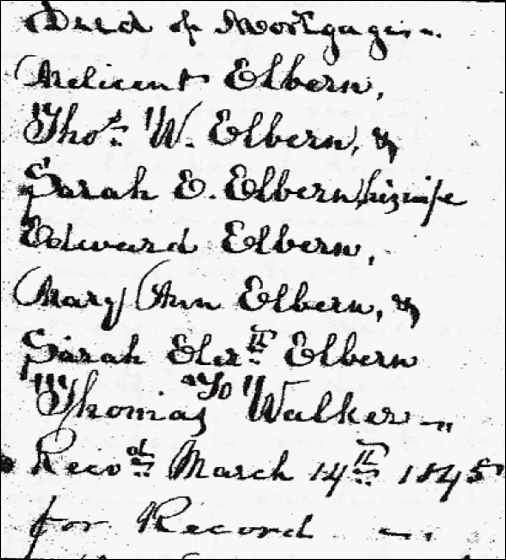 Deed of Mortgage.
Melicent Elbern,
Thos. W. Elbern, &
Sarah E. Elbern his wife
Edward Elbern,
Mary Ann Elbern, &
Sarah Elizth Elbern
To
Thomas Walker
Recod March 14th 1845
for Record